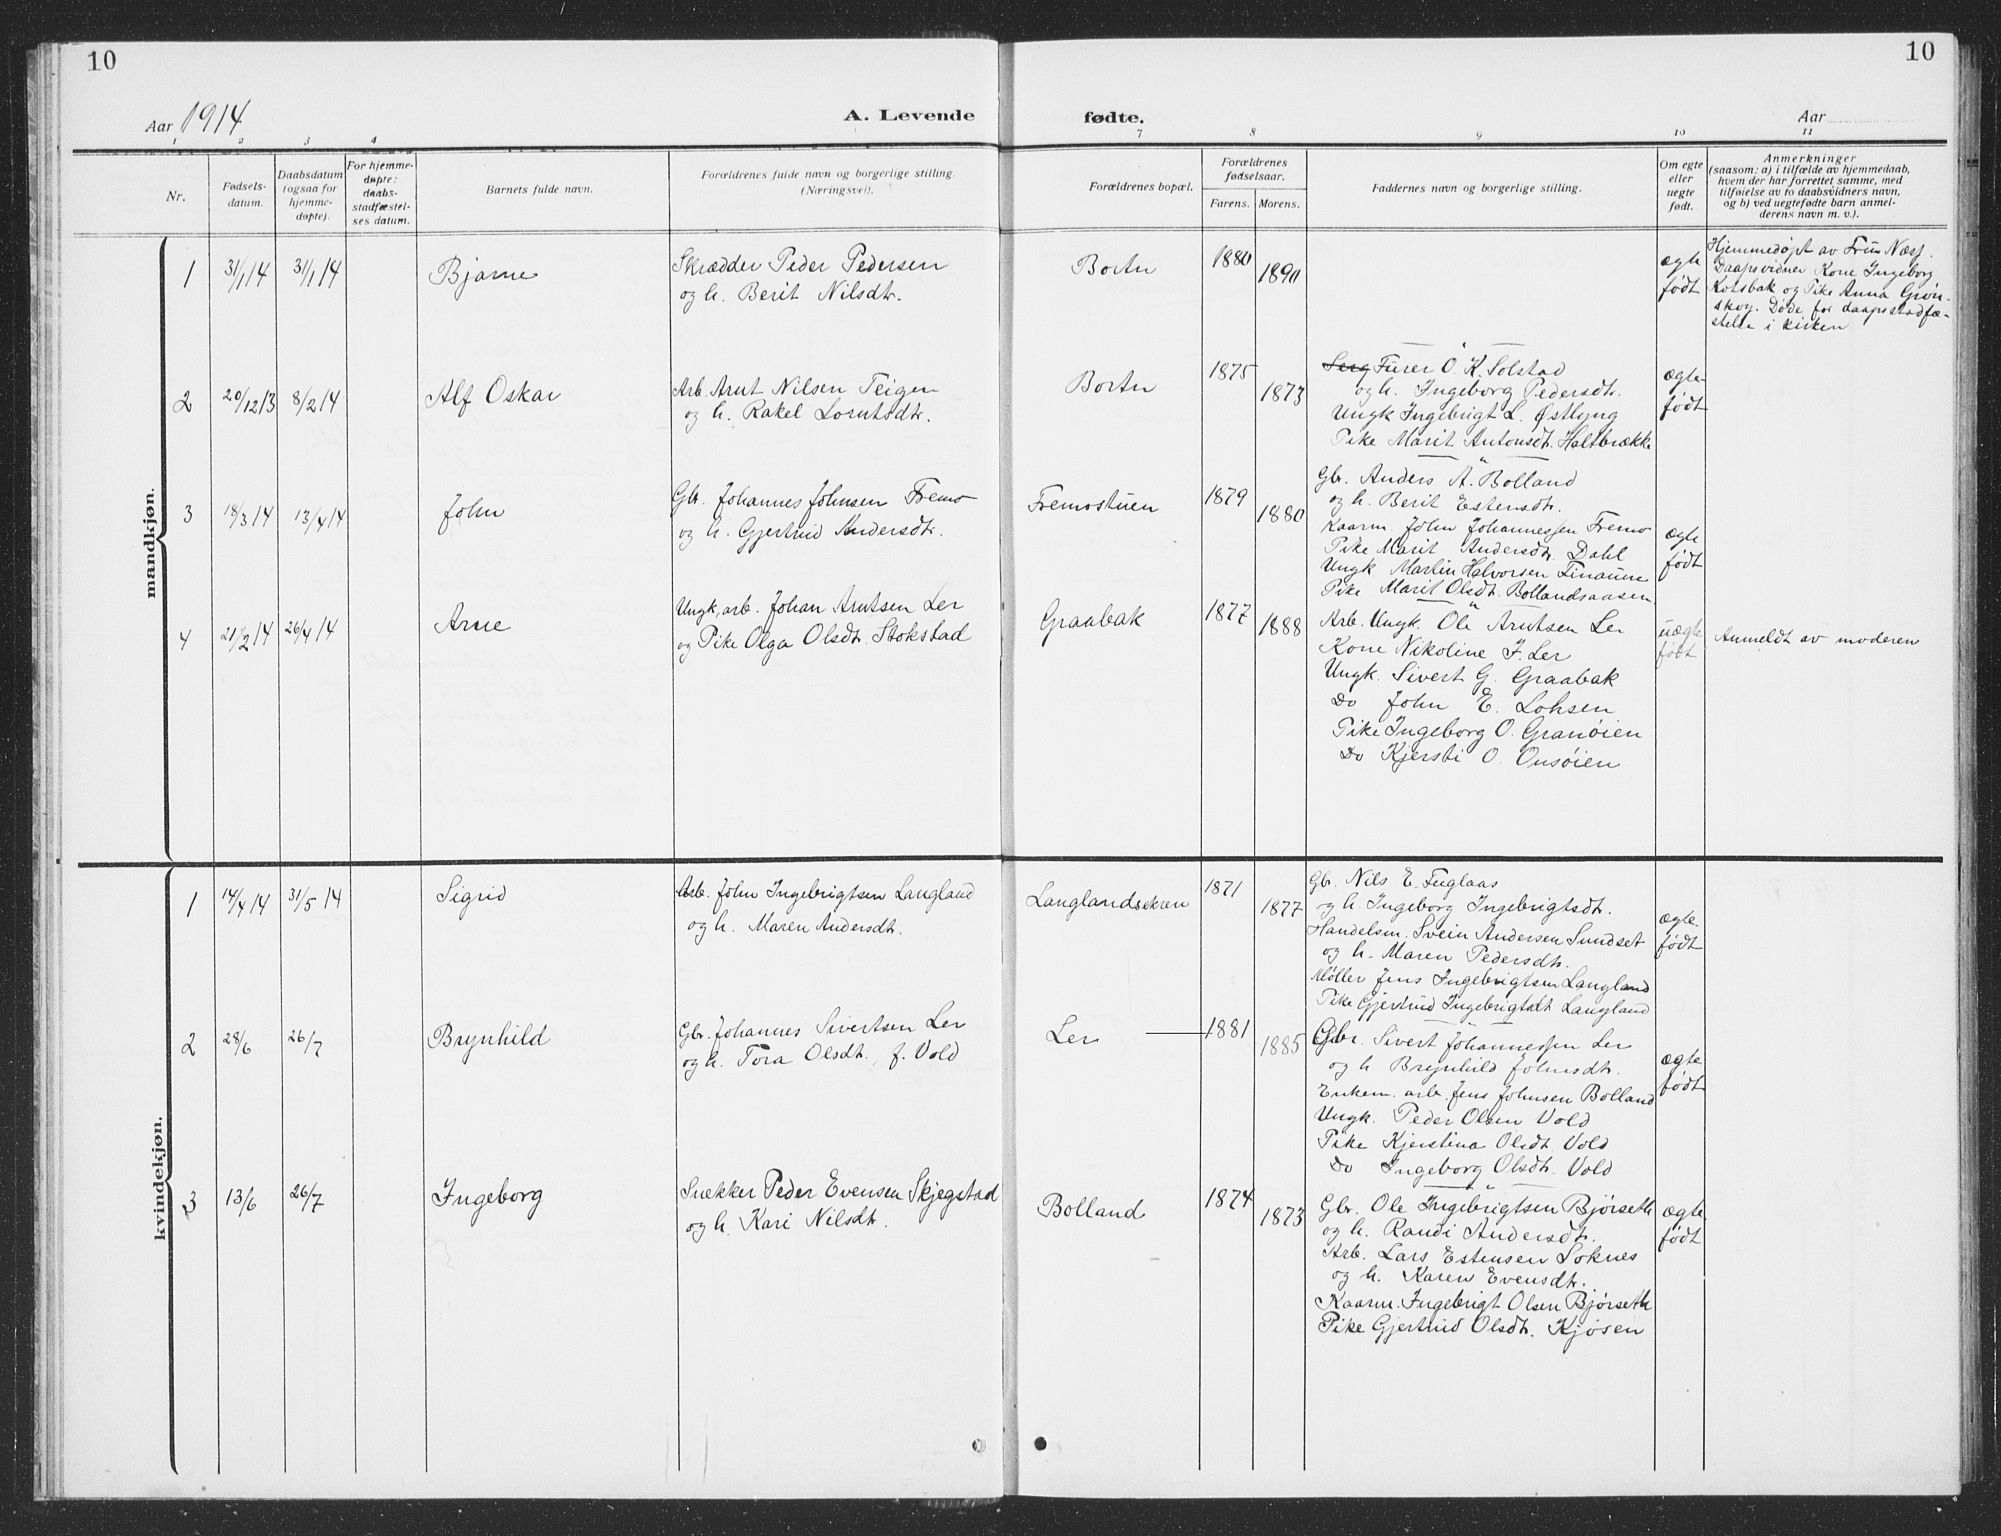 10
10
Aar 1914
A. Levende
fødte.
Aar
1 2 3 4
7 8 9 10 11
Nr.
Fødsels-
datum.
Daabsdatum
(ogsaa for
hjemme-
døpte).
For hjemme-
døpte:
daabs-
stadfæstel-
ses datum.
Barnets fulde navn.
Forældrenes fulde navn og borgerlige stilling.
(Næringsvei).
Forældrenes bopæl.
Forældrenes
fødselsaar.
Farens. Morens.
Faddernes navn og borgerlige stilling.
Om egte
eller
uegte
født.
Anmerkninger
(saasom: a) i tilfælde av hjemmedaab,
hvem der har forrettet samme, med
tilføielse av to daabsvidners navn,
og b) ved uegtefødte barn anmel-
derens navn m. v.).
mandkjøn.
1 31/1 14 31/1 14 Bjarne
Skrædder Peder Pedersen
og h. Berit Nilsdtr.
Borten 1880 1890
ægte
født
Hjemmedøpt av Fru Næss.
Daapsvidner Kone Ingeborg
Kotsbak og Pike Anna Grøn-
skog. Døde før daapsstadfæ-
stelse i kirken
2 20/12 13 8/2 14 Alf Oskar
Arb. Arnt Nilsen Teigen
og h. Rakel Lorntsdtr.
Borten 1875 1873
Serg Furer O. K. Solstad
og h. Ingeborg Pedersdtr.
Ungk Ingebrigt L. Østlyng
Pike Marit Antonsdt. Haltbrække
ægte-
født
3 18/3 14 13/4 14 John
Gbr. Johannes Johnsen Fremo
og h. Gjertrud Andersdtr.
Fremostuen 1879 1880
Gbr. Anders A. Bolland
og h. Berit Estensdtr.
Kaarm. John Johannessen Fremo
Pike Marit Andersdtr. Dahl
Ungk. Martin Halvorsen Finamo
Pike Marit Olsdt. Bollandsaasen
ægte
født
4 21/2 14 26/4 14 Arne
Ungk. arb. Johan Arntsen Ler
og Pike Olga Olsdt. Stokstad
Graabak 1877 1888
Arb. Ungk. Ole Arntsen Ler
Kone Nikoline J. Ler
Ungk. Sivert G. Graabak
Do John E. Lohsen
Pike Ingeborg O. Granøien
Do Kjersti O. Onsøien
uægte
født
Anmeldt av moderen
kvindekjøn.
1 14/4 14 31/5 14 Sigrid
Arb. John Ingebrigtsen Langland
og h. Maren Andersdt.
Langlandsekren 1871 1877
Gbr. Nils E. Fuglaas
og h. Ingeborg Ingebrigtsdt.
Handelsm. Svein Andersen Sundset
og h. Maren Pedersdtr.
Møller Jens Ingebrigtsen Langland
Pike Gjertrud Ingebrigtsdt Langland
ægte-
født
2 28/6 26/7 Brynhild
Gbr. Johannes Sivertsen Ler
og h. Tora Olsdt. f. Vold
Ler 1881 1885
Gbr. Sivert Johannessen Ler
og h Brynhild Johnsdtr.
Enkem. arb. Jens Johnsen Bolland
Ungk. Peder Olsen Vold
Pike Kjerstina Olsdt. Vold
Do Ingeborg Olsdtr. Vold
ægte
født
3 13/6 26/7 Ingeborg
Snekker Peder Evensen Skjegstad
og h. Kari Nilsdt.
Bolland 1874 1873
Gbr. Ole Ingebrigtsen Bjørseth
og h. Randi Andersdt.
Arb. Lars Estensen Soknes
og h. Karen Evensdtr.
Kaarm. Ingebrigt Olsen Bjørseth
Pike Gjertrud Olsdtr. Kjøsen
ægte
født